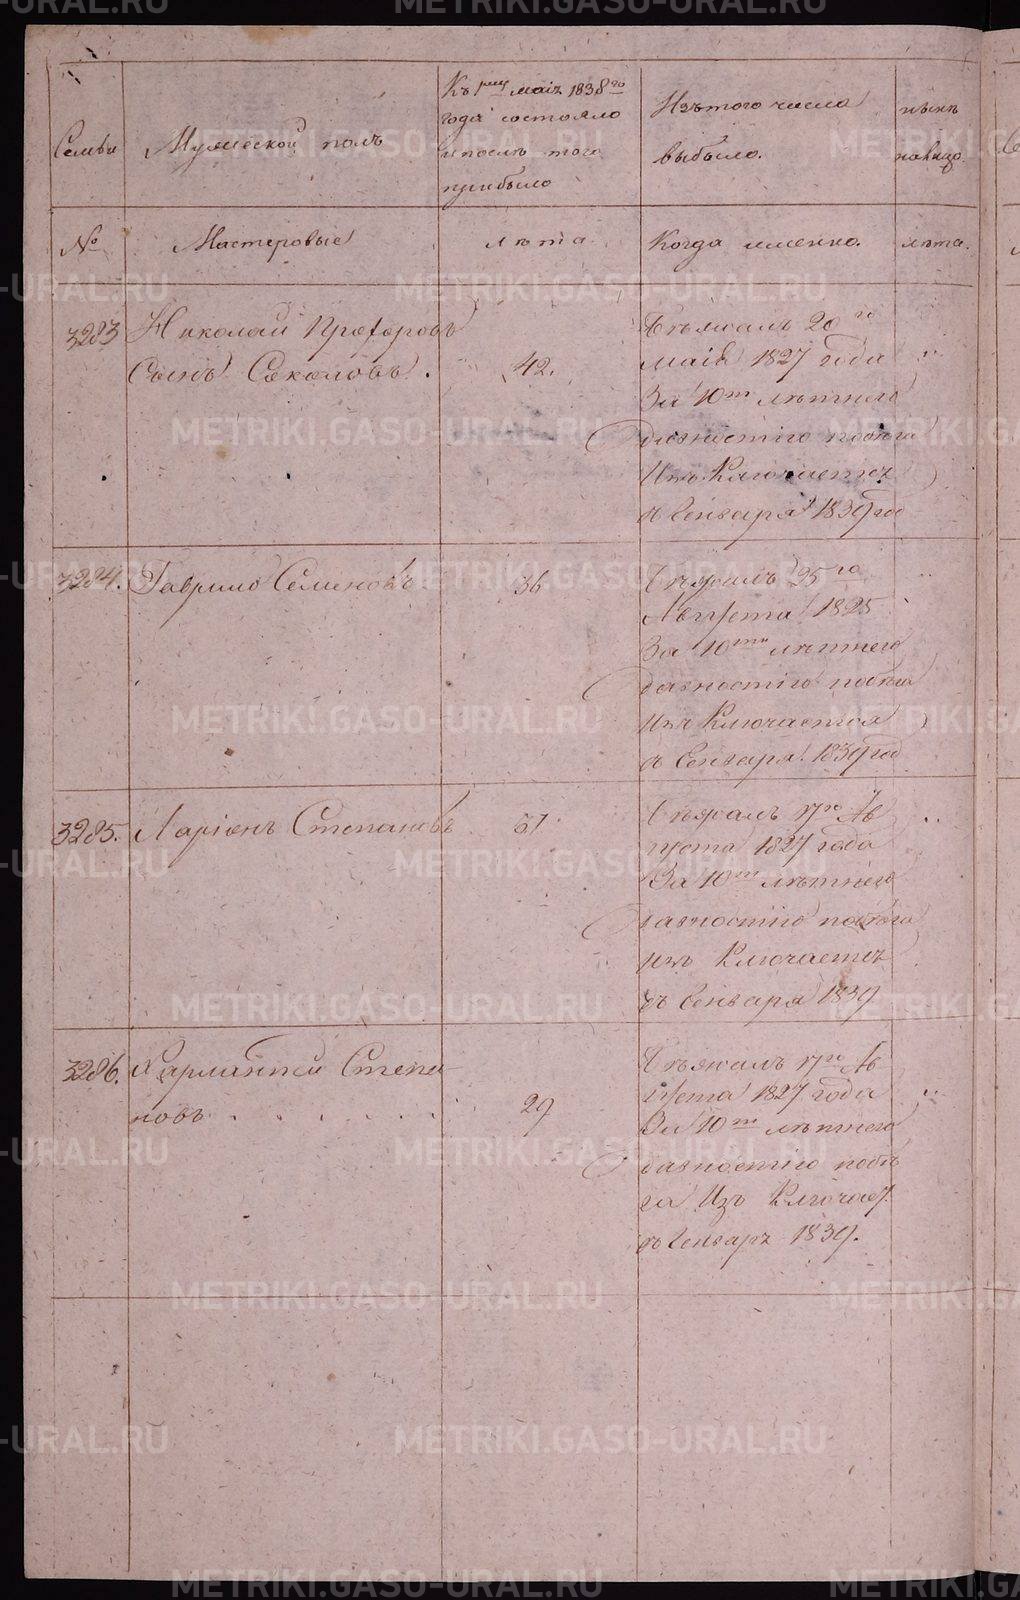 Семьи
Мужеской полъ
Къ 1му маiя 1838го
года состояло
и послѣ того
прибыло
Изъ того числа
выбыло.
нынѣ
налицо
№
Мастеровые
лѣта
Когда именно.
лѣта.
3283
Николай Прохоровъ
Сынъ Соколовъ.
42.
Бѣжалъ 20го
маiя 1827 года
За 10ти лѣтнею
давностiю побѣга
Изъ Ключается
въ Генваря 1839 год
3284.
Гаврило Семиновъ
36
Бѣжалъ 25го
Августа 1825
За 10ти лѣтнею
давностiю побега
Изъ Ключается
въ Генваря 1839 год
3285.
Ларiонъ Степановъ
Бѣжалъ 17го Ав
густа 1827 года
За 10ти лѣтнею
давностiю побѣга
изъ Ключается
въ Генваря 1839
3286.
Харлантей Степа
новъ . . . . . .
29
Бѣжалъ 17го Ав
густа 1827 года
За 10ти лѣтнею
давностiю побѣ
га Изъ Ключает.
въ Генварѣ 1839.
METRIKI.GASO-URAL.RU